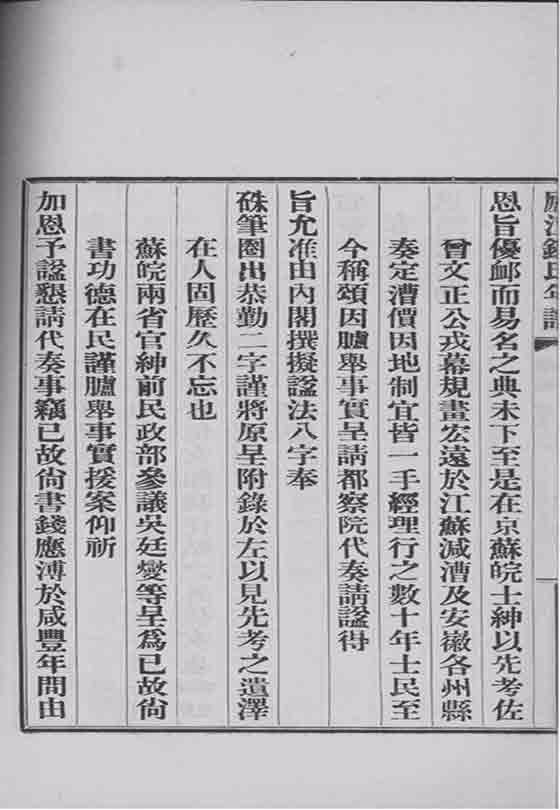 廬江錢氏年譜
恩旨優衈而易名之典未下至是在京蘇皖士紳以先考佐
曾文正公戎幕規畫宏遠於江蘇減漕及安徽各州縣
奏定漕價因地制宜皆一手經理行之數十年士民至
今稱頌因臚舉事實呈請都察院代奏請謚得
旨允准由內閣撰擬謚法八字奉
硃筆圈出恭勤二字謹將原呈附錄於左以見先考之遺澤
在人固歷久不忘也
蘇皖兩省官紳前民政部參議吳廷燮等呈爲已故尙
書功德在民謹臚舉事實援案仰祈
加恩予謚懇請代奏事竊已故尙書錢應溥於咸豐年間由